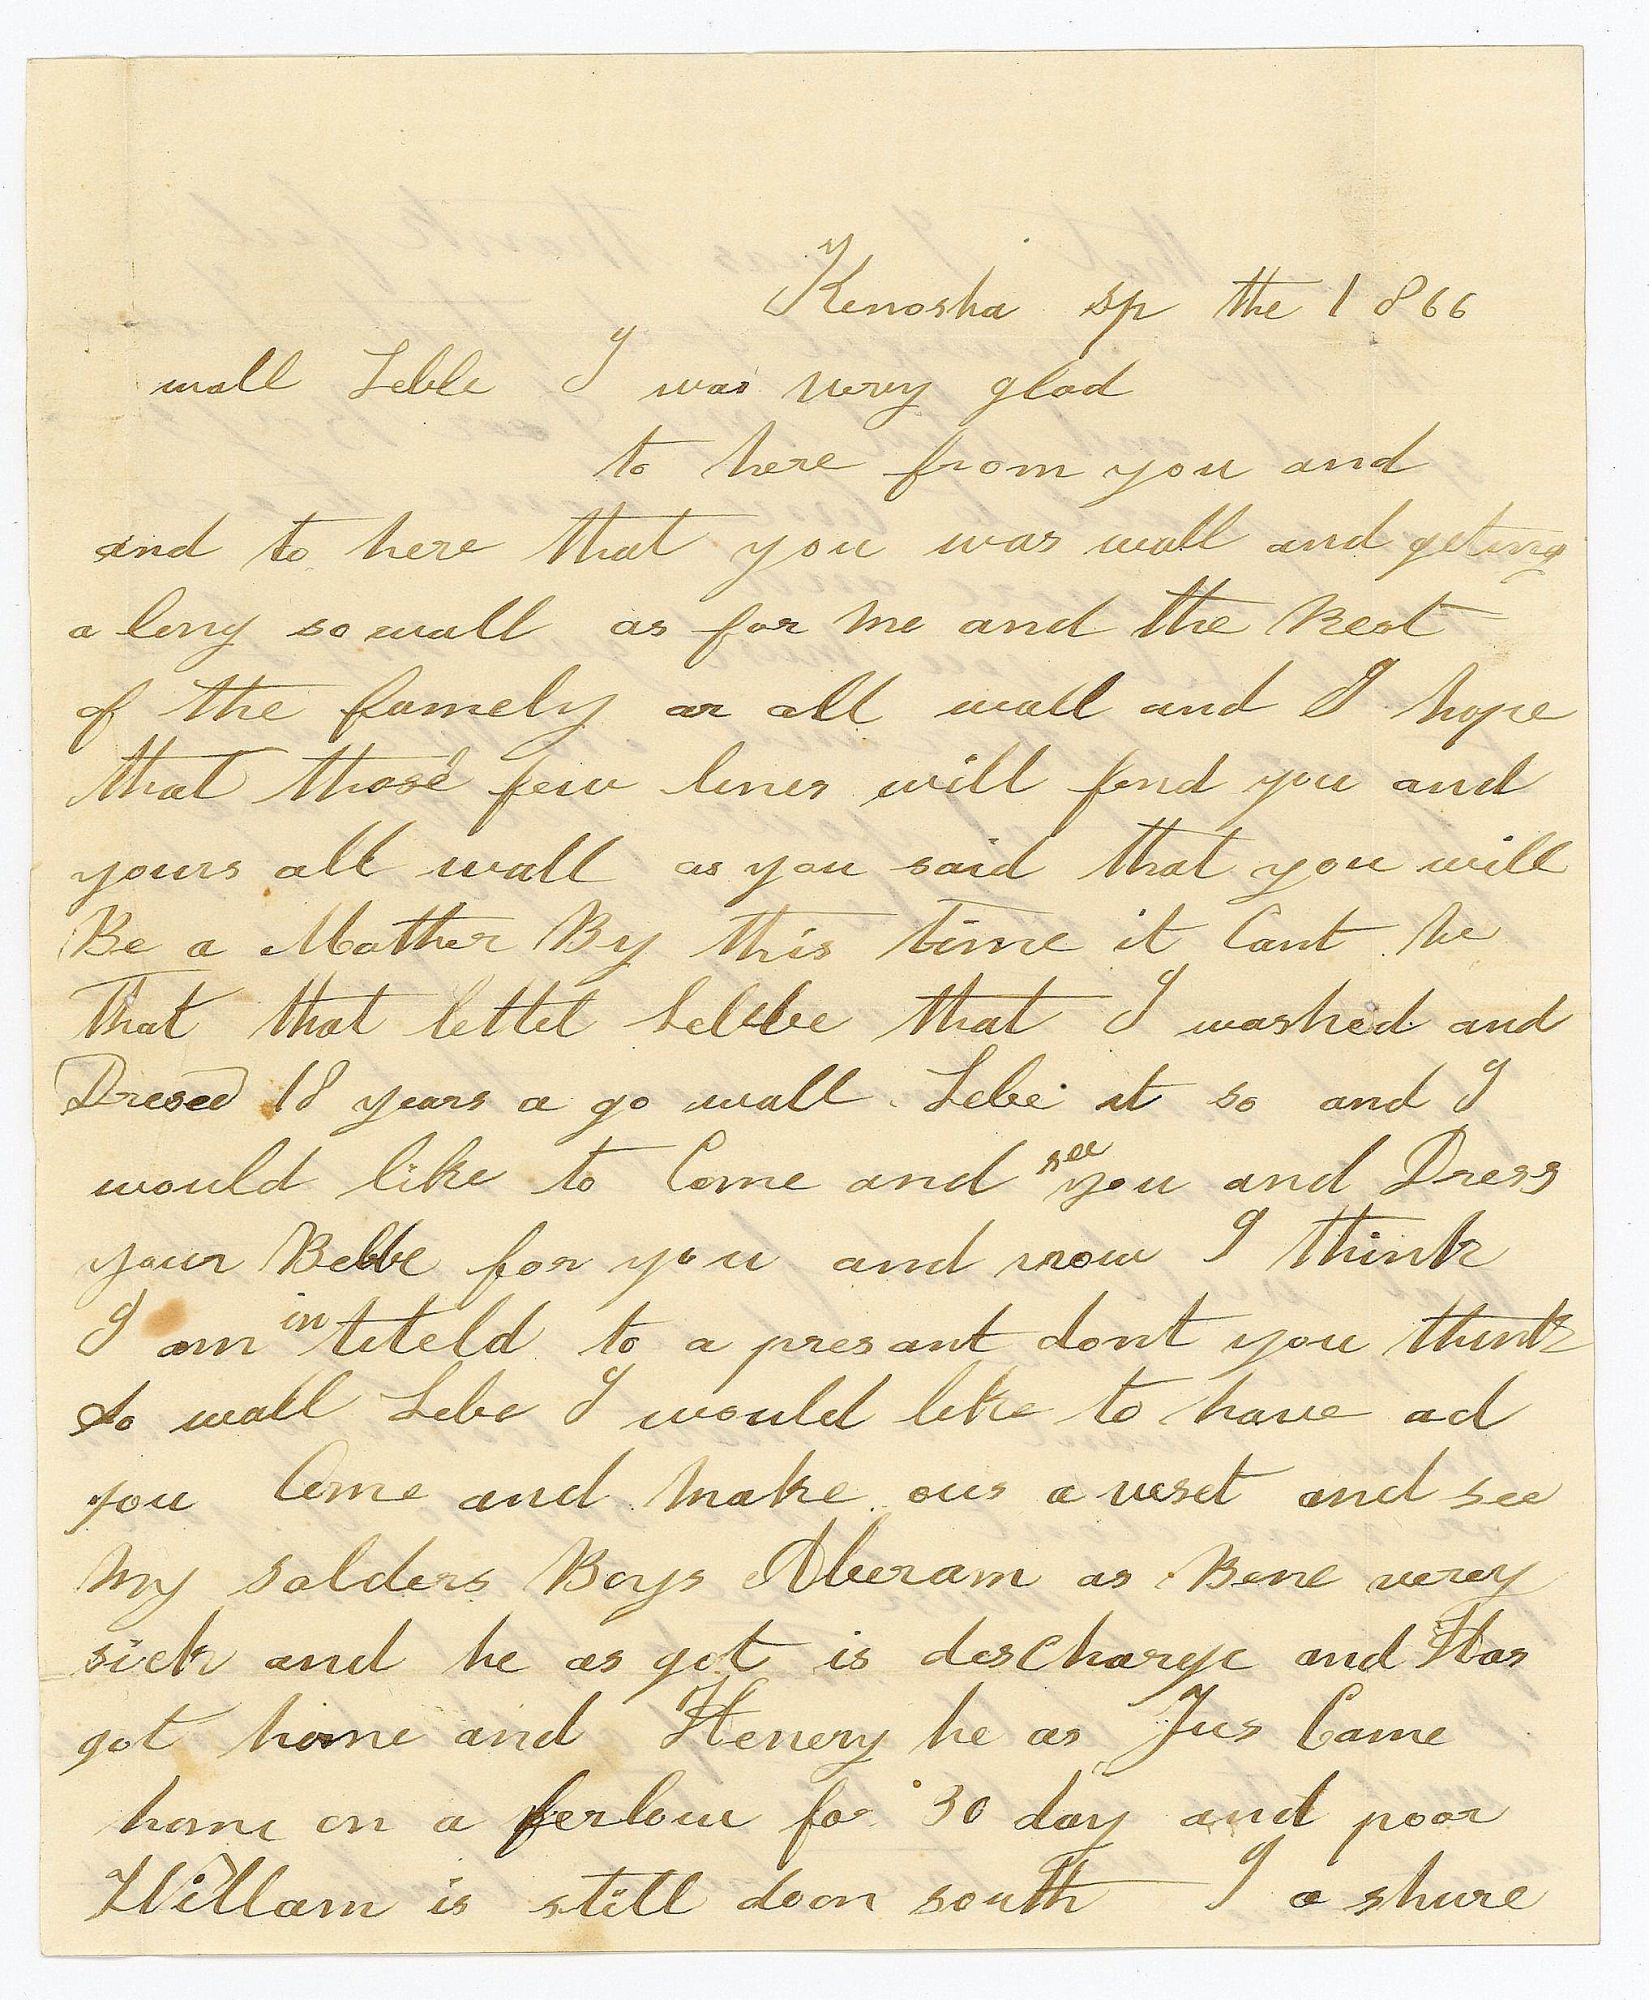 Kenosha sp the 1 866
wall Leble I was very glad
to here from you and
and to here that you was wall and geting
a long so wall as for me and the Rest
of the famely ar all wall and I hope
that those few lines will find you and
yours all wall as you said that you will
Be a Mother By this time it Cant be
That that lettel Lebbe that I washed and
Dresed 18 years a go wall Lebe it so and I
would like to Come and see you and Dress
your Bebbe for you and now I think
I am in titeld to a presant dont you think
so wall Lebe I would like to have ad
you Come and make ous a veset and see
my solders Boys Aberam as Bene verey
sick and he as got is descharge and Has
got home and Henery he as Jus Came
home on a ferlow for 30 day and poor
William is still doon south I a shure